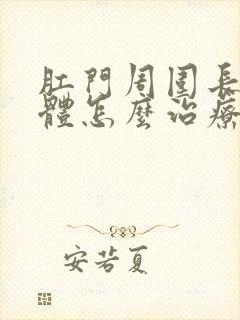 肛門周圍長
體怎麼治療
安若夏